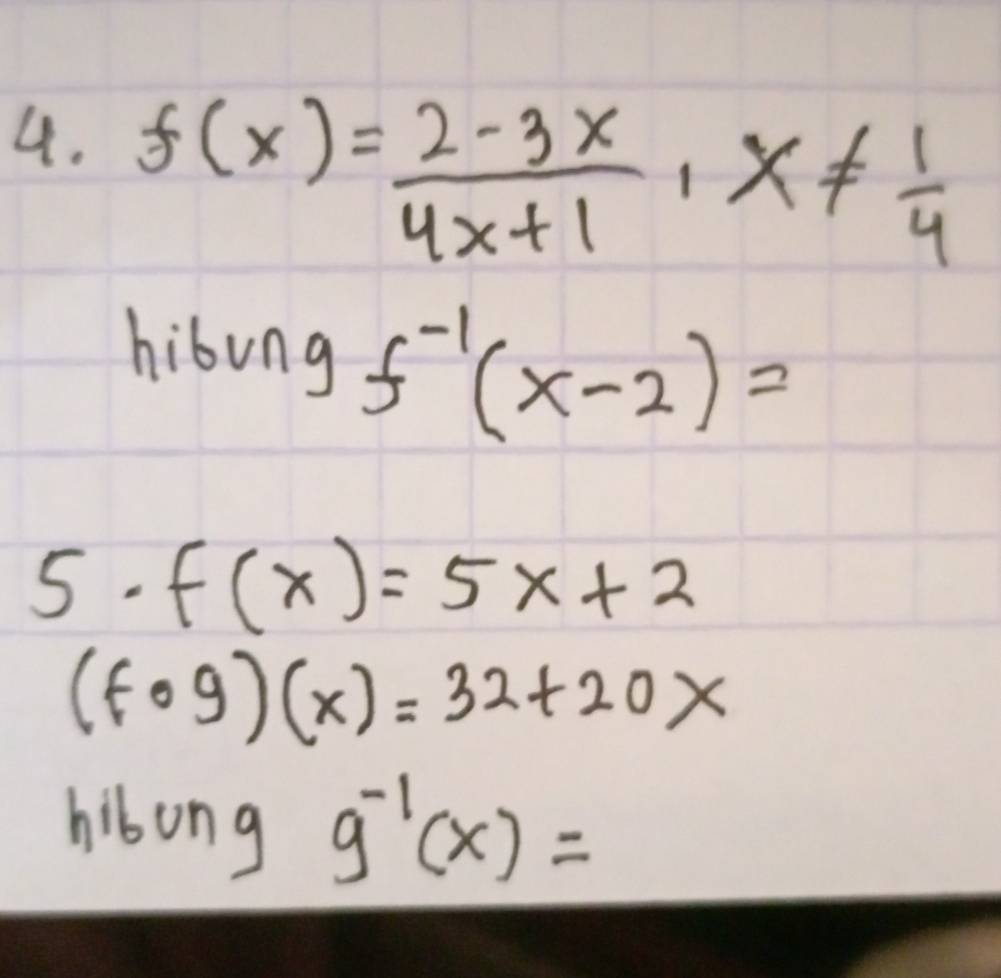 4. f(x) = \frac{2-3x}{4x+1}, x ≠ \frac{1}{4}
hibung f⁻¹(x-2) =
5. f(x) = 5x+2
(f∘g)(x) = 32+20x
hibung g⁻¹(x) =